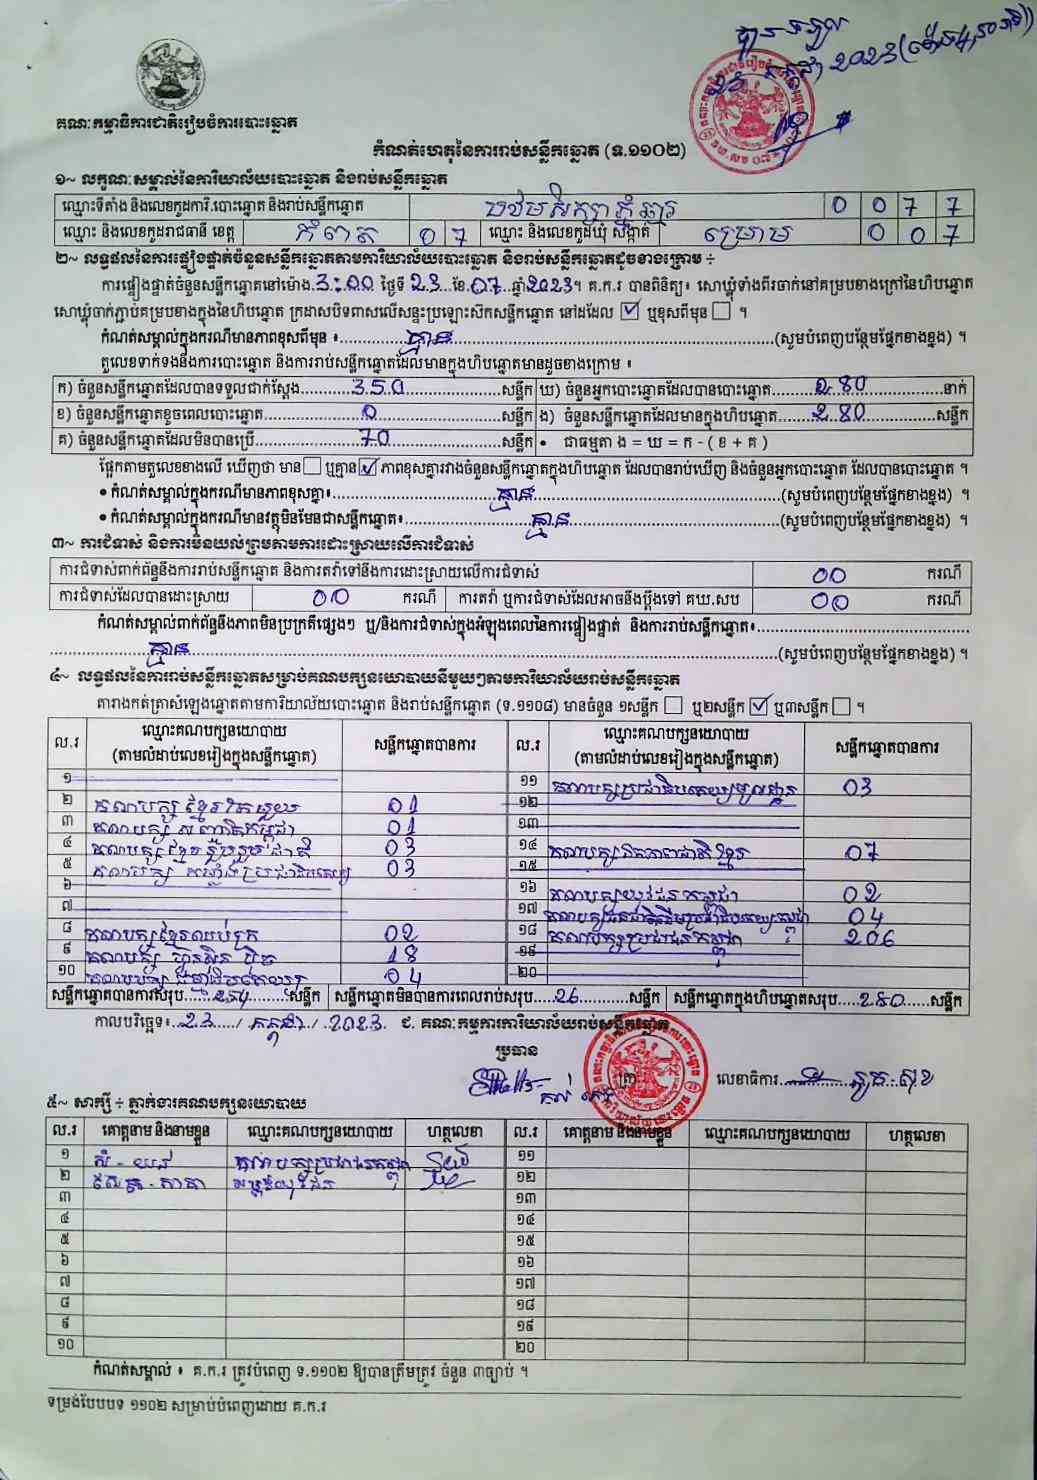 បានទទួល
23 កក្កដា 2023 (ម៉ោង 4,50 នាទី)
គណៈកម្មាធិការជាតិរៀបចំការបោះឆ្នោត
កំណត់ហេតុនៃការរាប់សន្លឹកឆ្នោត (ទ.១១០២)
១~ លក្ខណៈសម្គាល់នៃការិយាល័យបោះឆ្នោត និងរាប់សន្លឹកឆ្នោត
ឈ្មោះទីតាំង និងលេខកូដការិ.បោះឆ្នោត និងរាប់សន្លឹកឆ្នោត បឋមសិក្សាភ្នំឆ្មារ 0 0 7 7
ឈ្មោះ និងលេខកូដរាជធានី ខេត្ត កំពត 0 7 ឈ្មោះ និងលេខកូដឃុំ សង្កាត់ ម្រោម 0 0 7
២~ លទ្ធផលនៃការផ្ទៀងផ្ទាត់ចំនួនសន្លឹកឆ្នោតតាមការិយាល័យបោះឆ្នោត និងរាប់សន្លឹកឆ្នោតដូចខាងក្រោម ÷
ការផ្ទៀងផ្ទាត់ចំនួនសន្លឹកឆ្នោតនៅម៉ោង.3:00 ថ្ងៃទី 23..ខែ.07....ឆ្នាំ2023។ គ.ក.រ បានពិនិត្យ៖ សោឃ្លុំទាំងពីរចាក់នៅគម្របខាងក្រៅនៃហិបឆ្នោត
សោឃ្លុំចាក់ភ្ជាប់គម្របខាងក្នុងនៃហិបឆ្នោត ក្រដាសបិទពាសលើសន្ទះប្រឡោះស៊កសន្លឹកឆ្នោត នៅដដែល ☑ ឬខុសពីមុន ☐ ។
កំណត់សម្គាល់ក្នុងករណីមានភាពខុសពីមុន ៖ គ្មាន (សូមបំពេញបន្ថែមផ្នែកខាងខ្នង) ។
តួលេខទាក់ទងនឹងការបោះឆ្នោត និងការរាប់សន្លឹកឆ្នោតដែលមានក្នុងហិបឆ្នោតមានដូចខាងក្រោម ៖
ក) ចំនួនសន្លឹកឆ្នោតដែលបានទទួលជាក់ស្តែង 350 សន្លឹក ឃ) ចំនួនអ្នកបោះឆ្នោតដែលបានបោះឆ្នោត 280 នាក់
ខ) ចំនួនសន្លឹកឆ្នោតខូចពេលបោះឆ្នោត 0 សន្លឹក ង) ចំនួនសន្លឹកឆ្នោតដែលមានក្នុងហិបឆ្នោត 280 សន្លឹក
គ) ចំនួនសន្លឹកឆ្នោតដែលមិនបានប្រើ 70 សន្លឹក • ជាធម្មតា ង = ឃ = ក - ( ខ + គ )
ផ្អែកតាមតួលេខខាងលើ ឃើញថា មាន ☐ ឬគ្មាន ☑ ភាពខុសគ្នារវាងចំនួនសន្លឹកឆ្នោតក្នុងហិបឆ្នោត ដែលបានរាប់ឃើញ និងចំនួនអ្នកបោះឆ្នោត ដែលបានបោះឆ្នោត ។
• កំណត់សម្គាល់ក្នុងករណីមានភាពខុសគ្នា៖ គ្មាន (សូមបំពេញបន្ថែមផ្នែកខាងខ្នង) ។
• កំណត់សម្គាល់ក្នុងករណីមានវត្ថុមិនមែនជាសន្លឹកឆ្នោត៖ គ្មាន (សូមបំពេញបន្ថែមផ្នែកខាងខ្នង) ។
៣~ ការជំទាស់ និងការមិនយល់ព្រមតាមការដោះស្រាយលើការជំទាស់
ការជំទាស់ពាក់ព័ន្ធនឹងការរាប់សន្លឹកឆ្នោត និងការតវ៉ាទៅនឹងការដោះស្រាយលើការជំទាស់ 00 ករណី
ការជំទាស់ដែលបានដោះស្រាយ 00 ករណី ការតវ៉ា ឬការជំទាស់ដែលអាចនឹងប្តឹងទៅ គឃ.សប 00 ករណី
កំណត់សម្គាល់ពាក់ព័ន្ធនឹងភាពមិនប្រក្រតីផ្សេងៗ ឬ/និងការជំទាស់ក្នុងអំឡុងពេលនៃការផ្ទៀងផ្ទាត់ និងការរាប់សន្លឹកឆ្នោត៖
គ្មាន (សូមបំពេញបន្ថែមផ្នែកខាងខ្នង) ។
៤~ លទ្ធផលនៃការរាប់សន្លឹកឆ្នោតសម្រាប់គណបក្សនយោបាយនីមួយៗតាមការិយាល័យរាប់សន្លឹកឆ្នោត
តារាងកត់ត្រាសំឡេងឆ្នោតតាមការិយាល័យបោះឆ្នោត និងរាប់សន្លឹកឆ្នោត (ទ.១១០៨) មានចំនួន ១សន្លឹក ☐ ឬ២សន្លឹក ☑ ឬ៣សន្លឹក ☐ ។
ល.រ ឈ្មោះគណបក្សនយោបាយ (តាមលំដាប់លេខរៀងក្នុងសន្លឹកឆ្នោត) សន្លឹកឆ្នោតបានការ ល.រ ឈ្មោះគណបក្សនយោបាយ (តាមលំដាប់លេខរៀងក្នុងសន្លឹកឆ្នោត) សន្លឹកឆ្នោតបានការ
១ ១១ គណបក្សប្រជាធិបតេយ្យមូលដ្ឋាន 03
២ គណបក្សខ្មែរតែមួយ 01 ១២
៣ គណបក្ស សញ្ជាតិកម្ពុជា 01 ១៣
៤ គណបក្សខ្មែរ រួបរួមជាតិ 03 ១៤ គណបក្សឯកភាពជាតិខ្មែរ 07
៥ គណបក្ស កម្លាំងប្រជាធិបតេយ្យ 03 ១៥
៦ ១៦ គណបក្សយុវជនកម្ពុជា 02
៧ ១៧ 04
៨ គណបក្សខ្មែរឈប់ក្រ 02 ១៨ គណបក្សប្រជាជនកម្ពុជា 206
៩ គណបក្ស ហ៊្វុនស៊ិនប៉ិច 18 ១៩
១០ 04 ២០
សន្លឹកឆ្នោតបានការសរុប 254 សន្លឹក សន្លឹកឆ្នោតមិនបានការពេលរាប់សរុប 26 សន្លឹក សន្លឹកឆ្នោតក្នុងហិបឆ្នោតសរុប 280 សន្លឹក
កាលបរិច្ឆេទ៖ 23 / កក្កដា / 2023. ជ. គណៈកម្មការការិយាល័យរាប់សន្លឹកឆ្នោត
ប្រធាន
លេខាធិការ
៥~ សាក្សី ÷ ភ្នាក់ងារគណបក្សនយោបាយ
ល.រ គោត្តនាម និងនាមខ្លួន ឈ្មោះគណបក្សនយោបាយ ហត្ថលេខា ល.រ គោត្តនាម និងនាមខ្លួន ឈ្មោះគណបក្សនយោបាយ ហត្ថលេខា
១ គណបក្សប្រជាជនកម្ពុជា ១១
២ ១២
៣ ១៣
៤ ១៤
៥ ១៥
៦ ១៦
៧ ១៧
៨ ១៨
៩ ១៩
១០ ២០
កំណត់សម្គាល់ ៖ គ.ក.រ ត្រូវបំពេញ ទ.១១០២ ឱ្យបានត្រឹមត្រូវ ចំនួន ៣ច្បាប់ ។
ទម្រង់បែបបទ ១១០២ សម្រាប់បំពេញដោយ គ.ក.រ